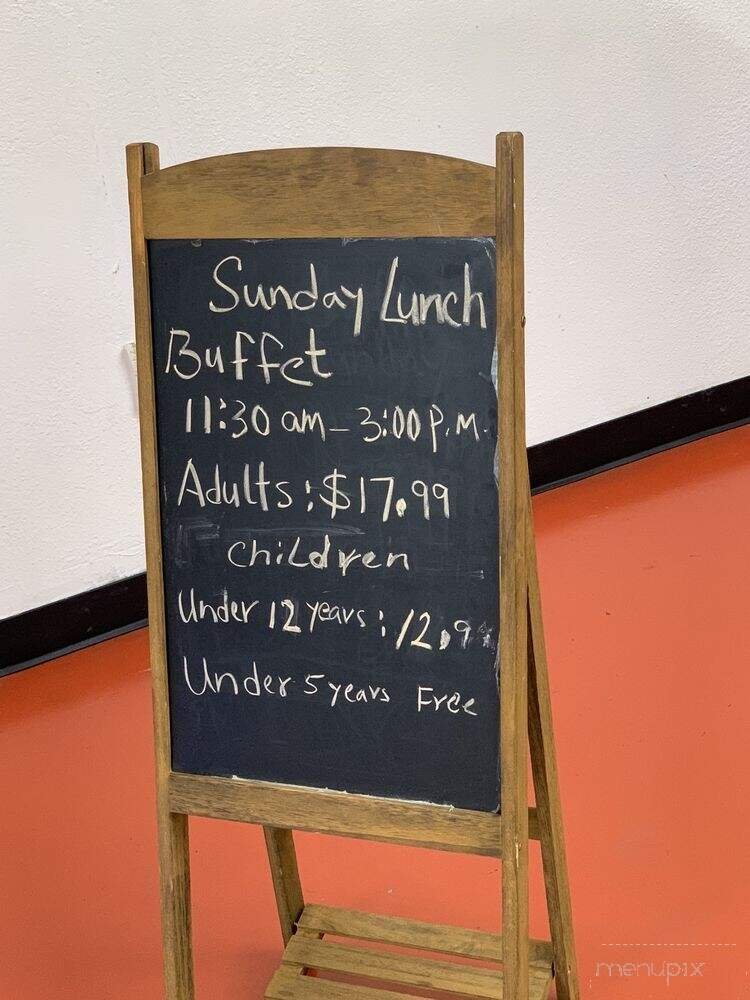 Sunday Lunch
Buffet
11:30 am - 3:00 P.M.
Adults : $17.99
children
Under 12 years :
Under 5 years Free
menupix